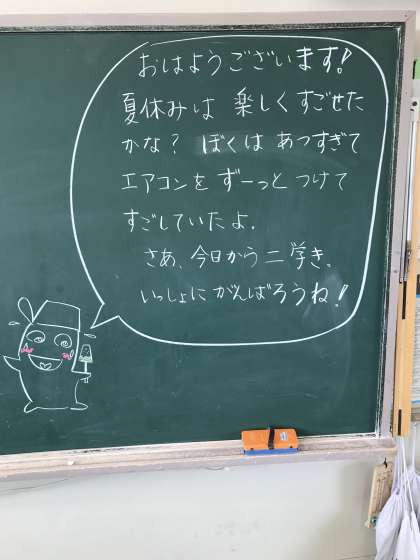 おはようございます!
夏休みは 楽しく すごせた
かな? ぼくは あつすぎて
エアコンを ずーっと つけて
すごしていたよ.
さあ、今日から 二学き.
いっしょに がんばろうね!